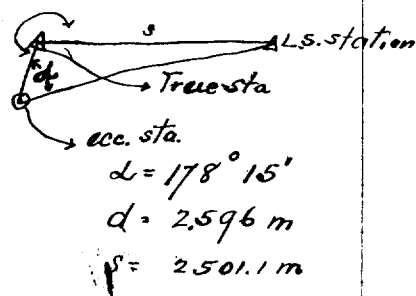 s
L.S. station
α
d
True sta
ecc. sta.
α = 178° 15'
d = 2.596 m
s = 2501.1 m